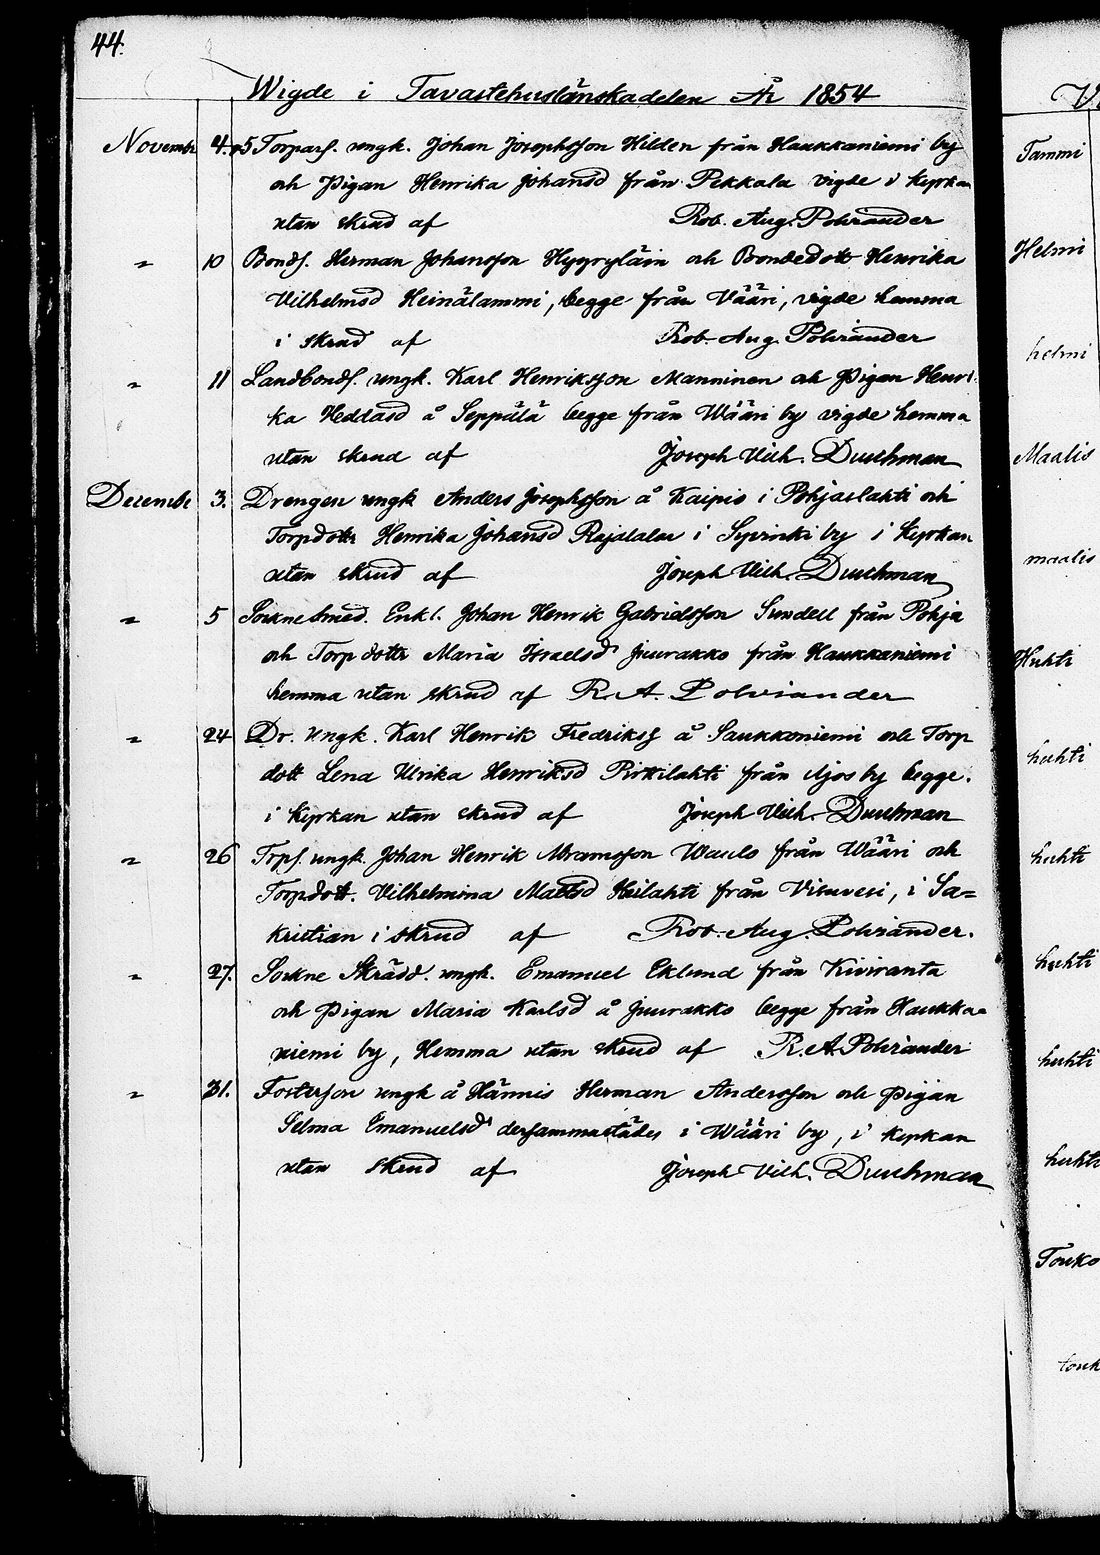 44.
Wigde i Tavastehuslänskadelen År 1854
November 4. Torpars. ungk. Johan Josephsson Hilden från Haukkaniemi by
och Pigan Henrika Johansd från Pekkala vigde i kyrkan
utan skrud af Rob. Aug. Polviander
" 10 Bonds. Herman Johansson Hygryläin och Bondedott Henrika
Vilhelmsd Heinälammi, begge från Vääri, vigde hemma
i skrud af Rob. Aug. Polviander
" 11 Landbonds. ungk. Karl Henriksson Manninen och Pigan Henri-
ka Heddasd å Seppälä begge från Wääri by vigde hemma
utan skrud af Joseph Vilh. Duchman
Decembr 3. Drengen ungk Anders Josephsson å Kaipio i Pohjaslahti och
Torpdottr Henrika Johansd Rajalalas i Syvinki by i kyrkan
utan skrud af Joseph Vilh. Duchman
" 5 Sockne Smed. Enkl. Johan Henrik Gabrielsson Sundell från Pohja
och Torpdottr Maria Israelsd Juurakko från Haukkaniemi
hemma utan skrud af R. A. Polviander
" 24 Dr. Ungk. Karl Henrik Fredrikss å Saukkoniemi och Torp
dott Lena Ulrika Henriksd Pirkilahti från Ajos by begge.
i kyrkan utan skrud af Joseph Vilh. Duchman
" 26 Trps. ungk. Johan Henrik Abramsson Waulo från Wääri och
Torpdott. Vilhelmina Mattsd Heilahti från Visuvesi, i Sa=
kristian i skrud af Rob. Aug. Polviander.
" 27. Sockne Skrädd. ungk. Emanuel Eklund från Kiviranta
och Pigan Maria Karlsd å Juurakko begge från Haukka=
niemi by, Hemma utan skrud af R. A. Polviander
" 31. Fosterson ungk å Hännis Herman Andersson och Pigan
Selma Emanuelsd dersammastädes i Wääri by, i kyrkan
utan skrud af Joseph Vilh. Duchman
Tammi
Helmi
helmi
Maalis
maalis
Huhti
huhti
huhti
huhti
huhti
huhti
Touko
touk